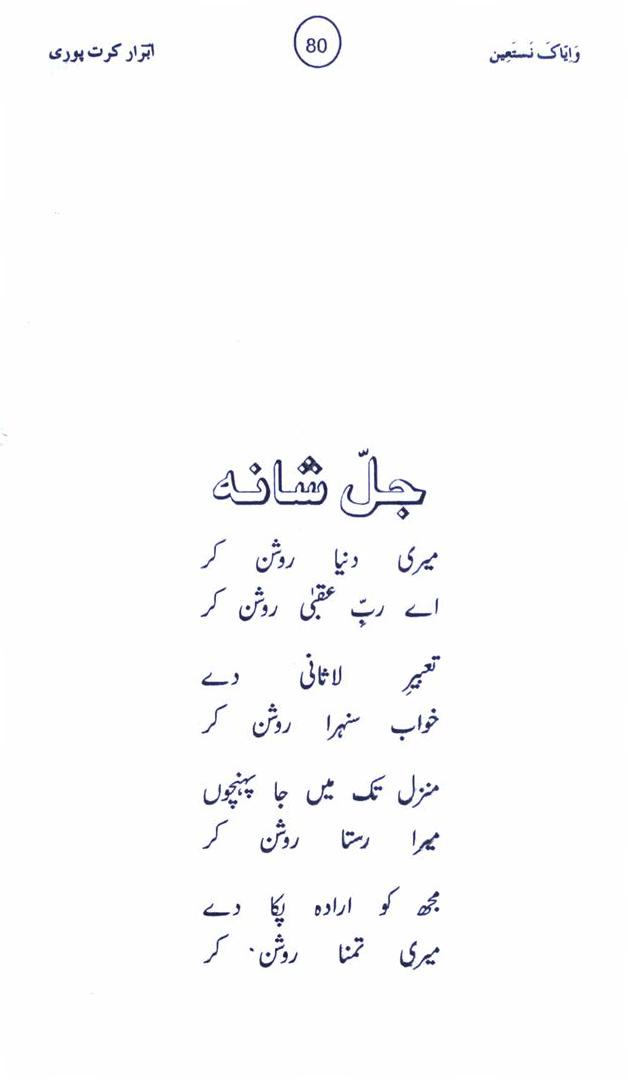 وَاِیّاکَ نَستَعِین 80 ابرار کرت پوری
جلّ شانہ
میری دنیا روشن کر
اے ربِّ عقبٰی روشن کر
تعبیرِ لاثانی دے
خواب سنہرا روشن کر
منزل تک میں جا پہنچوں
میرا رستا روشن کر
مجھ کو ارادہ پکا دے
میری تمنا روشن کر